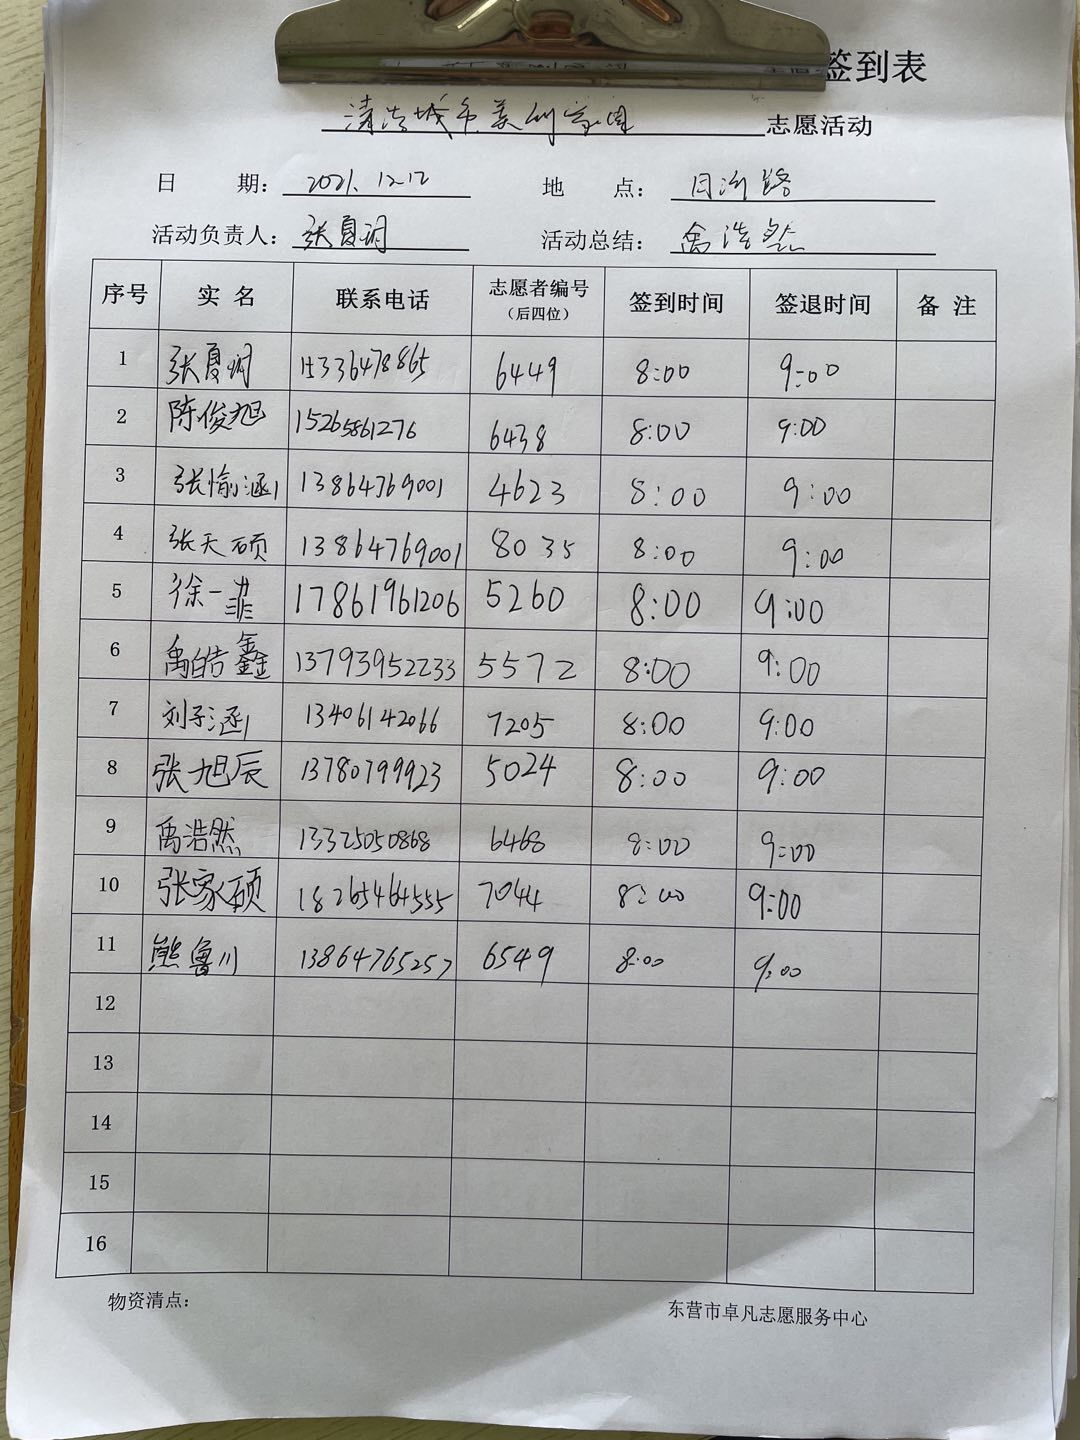 签到表
清洁城市美丽家园 志愿活动
日 期: 2021.12.12 地 点:
活动负责人: 张夏玥 活动总结: 禹浩然
序号 实 名 联系电话 志愿者编号 (后四位) 签到时间 签退时间 备 注
1 张夏玥 15336478865 6449 8:00 9:00
2 陈俊旭 15265861276 6438 8:00 9:00
3 张愉涵 13864769001 4623 8:00 9:00
4 张天硕 13864769001 8035 8:00 9:00
5 徐一菲 17861961206 5260 8:00 9:00
6 禹皓鑫 13793952233 5572 8:00 9:00
7 刘子涵 13406142066 7205 8:00 9:00
8 张旭辰 13780799923 5024 8:00 9:00
9 禹浩然 13325050868 6468 8:00 9:00
10 张家硕 18265464555 7044 8:00 9:00
11 熊鲁川 13864765257 6549 8:00 9:00
12
13
14
15
16
物资清点: 东营市卓凡志愿服务中心